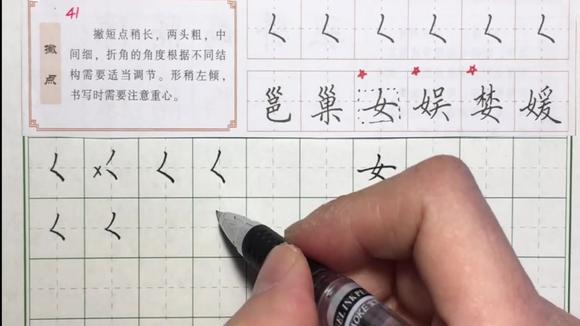 41
撇点
撇短点稍长，两头粗，中
间细，折角的角度根据不同结
构需要适当调节。形稍左倾，
书写时需要注意重心。
く く く く く く
邕 巢 女 娱 婪 媛
く ×く く く 女
く く